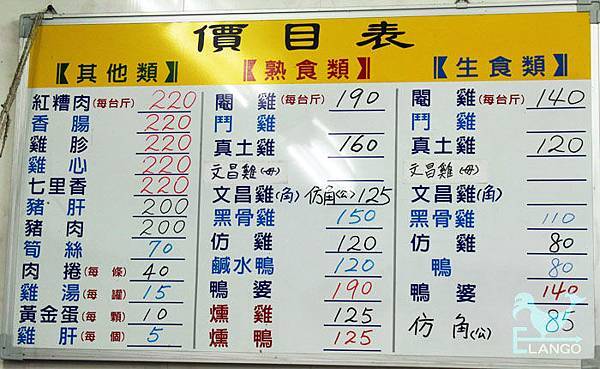 價目表
【其他類】
紅糟肉(每台斤) 220
香腸 220
雞胗 220
雞心 220
七里香 220
豬肝 200
豬肉 200
筍絲 70
肉捲(每條) 40
雞湯(每罐) 15
黃金蛋(每顆) 10
雞肝(每個) 5
【熟食類】
閹雞(每台斤) 190
鬥雞
真土雞 160
文昌雞(母)
文昌雞(角) 仿角(公) 125
黑骨雞 150
仿雞 120
鹹水鴨 120
鴨婆 190
燻雞 125
燻鴨 125
【生食類】
閹雞(每台斤) 140
鬥雞
真土雞 120
文昌雞(母)
文昌雞(角)
黑骨雞 110
仿雞 80
鴨 80
鴨婆 140
仿角(公) 85
ELANGO